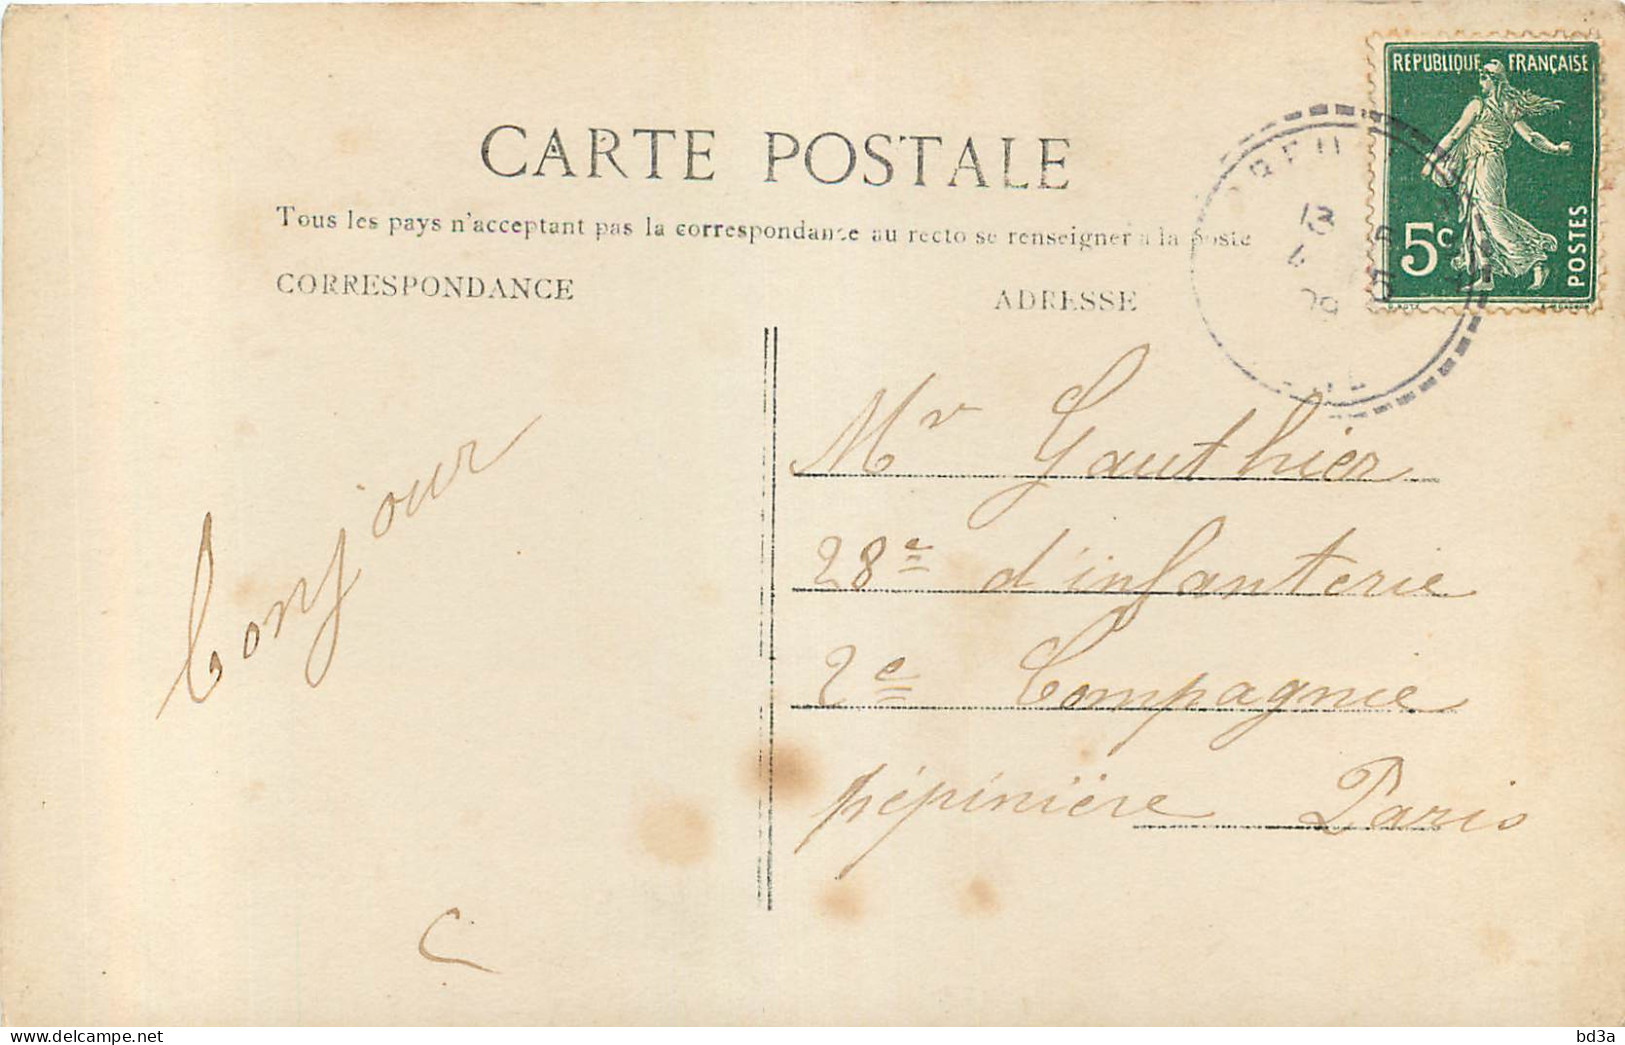 REPUBLIQUE FRANÇAISE
5c POSTES
CARTE POSTALE
Tous les pays n'acceptant pas la correspondance au recto se renseigner à la poste
CORRESPONDANCE
ADRESSE
13
Bonjour
C
Mr Gauthier
28e d'infanterie
2e Compagnie
pépinière Paris
bd3a